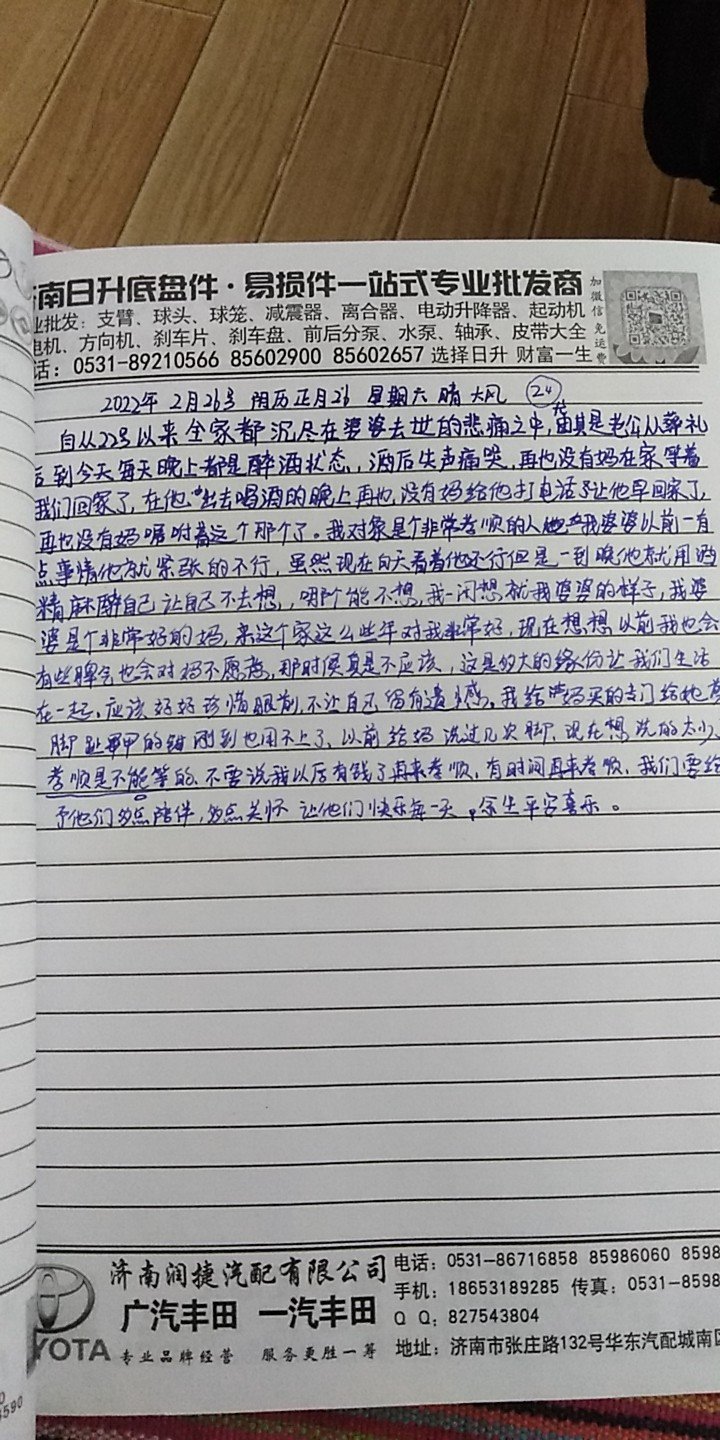 南日升底盘件·易损件一站式专业批发商
加微信免运费
业批发：支臂、球头、球笼、减震器、离合器、电动升降器、起动机
电机、方向机、刹车片、刹车盘、前后分泵、水泵、轴承、皮带大全
话：0531-89210566 85602900 85602657 选择日升 财富一生
2022年 2月26号 阴历正月26 星期六 晴 大风 24
自从22号以来全家都沉尽在婆婆去世的悲痛之中，尤其是老公从葬礼
后到今天每天晚上都是醉酒状态，酒后失声痛哭，再也没有妈在家等着
我们回家了，在他出去喝酒的晚上再也没有妈给他打电话让他早回家了，
再也没有妈嘱咐着这个那个了。我对象是个非常孝顺的人 我婆婆以前一有
点事情他就紧张的不行，虽然现在白天看着他还行但是一到晚他就用酒
精麻醉自己让自己不去想，哪个能不想，我一闲想就我婆婆的样子，我婆
婆是个非常好的妈，来这个家这么些年对我非常好，现在想想以前我也会
有些脾气也会对妈不愿意，那时侯真是不应该，这是多大的缘份让我们生活
在一起，应该好好珍惜眼前，不让自己留有遗憾。我给妈买的专门给她剪
脚趾甲的钳刚到也用不上了，以前给妈洗过几次脚，现在想洗的太少，
孝顺是不能等的，不要说我以后有钱了再来孝顺，有时间再来孝顺，我们要给
予他们多点陪伴，多点关怀 让他们快乐每一天，余生平安喜乐。
济南润捷汽配有限公司
广汽丰田 一汽丰田
YOTA 专业品牌经营 服务更胜一筹
电话：0531-86716858 85986060 8598
手机：18653189285 传真：0531-8598
Q Q：827543804
地址：济南市张庄路132号华东汽配城南区